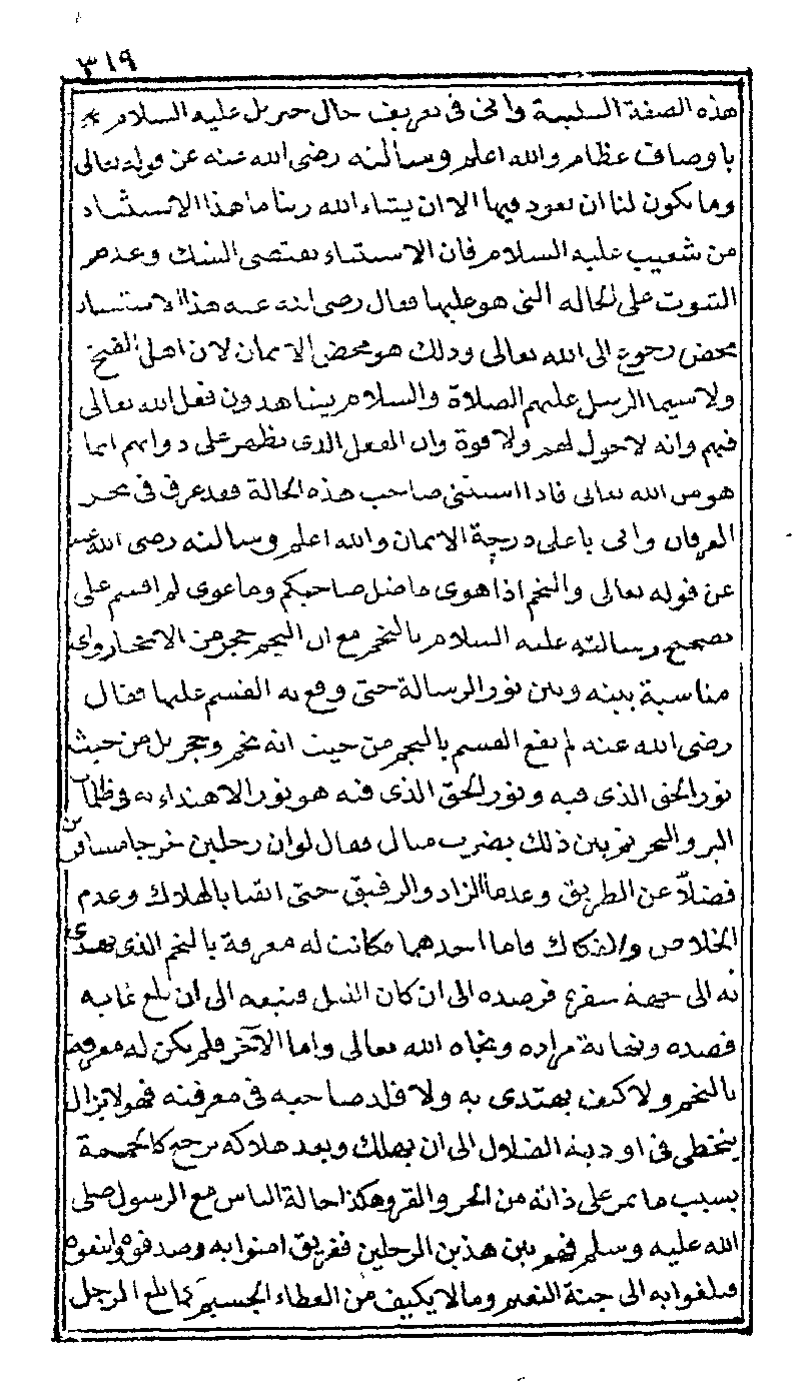 ٣١٩
هذه الصفة السلبية واتى فى تعريف حال جبريل عليه السلام
باوصاف عظام والله اعلم وسالته رضى الله عنه عن قوله تعالى
وما يكون لنا ان نعود فيها الا ان يشاء الله ربنا ما هذا الاستثناء
من شعيب عليه السلام فان الاستثناء يقتضى الشك وعدم
الثبوت على الحالة التى هو عليها فقال رضى الله عنه هذا الاستثناء
محض رجوع الى الله تعالى وذلك هو محض الايمان لان اهل الفتح
ولا سيما الرسل عليهم الصلاة والسلام يشاهدون فعل الله تعالى
فيهم وانه لا حول لهم ولا قوة وان الفعل الذى يظهر على ذواتهم انما
هو من الله تعالى فاذا استثنى صاحب هذه الحالة فقد غرق فى بحر
العرفان واتى باعلى درجة الايمان والله اعلم وسالته رضى الله عنه
عن قوله تعالى والنجم اذا هوى ما ضل صاحبكم وما غوى لم اقسم على
تصحيح رسالته عليه السلام بالنجم مع ان النجم حجر من الاحجار واى
مناسبة بينه وبين نور الرسالة حتى وقع به القسم عليها فقال
رضى الله عنه لم يقع القسم بالنجم من حيث انه نجم وحجر بل من حيث
نور الحق الذى فيه ونور الحق الذى فيه هو نور الاهتداء به فى ظلمات
البر والبحر ثم بين ذلك بضرب مثال فقال لو ان رجلين خرجا مسافرين
فضلا عن الطريق وعدما الزاد والرفيق حتى ايقنا بالهلاك وعدم
الخلاص والفكاك فاما احدهما فكانت له معرفة بالنجم الذى يهتدى
به الى جهة سفره فرصده الى ان كان الليل فتبعه الى ان بلغ غاية
قصده ونهاية مراده ونجاه الله تعالى واما الآخر فلم يكن له معرفة
بالنجم ولا كيف يهتدى به ولا قلد صاحبه فى معرفته فهو لا يزال
يتخطى فى اودية الضلال الى ان يهلك وبعد هلاكه يرجع كالحممة
بسبب ما يمر على ذاته من الحر والقر وهكذا حالة الناس مع الرسول صلى
الله عليه وسلم فهم بين هذين الرجلين ففريق امنوا به وصدقوه واتبعوه
فبلغوا به الى جنة النعيم وما لا يكيف من العطاء الجسيم كما بلغ الرجل